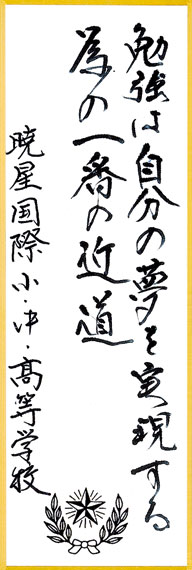 勉強は自分の夢を実現する
為の一番の近道
暁星国際小・中・高等学校